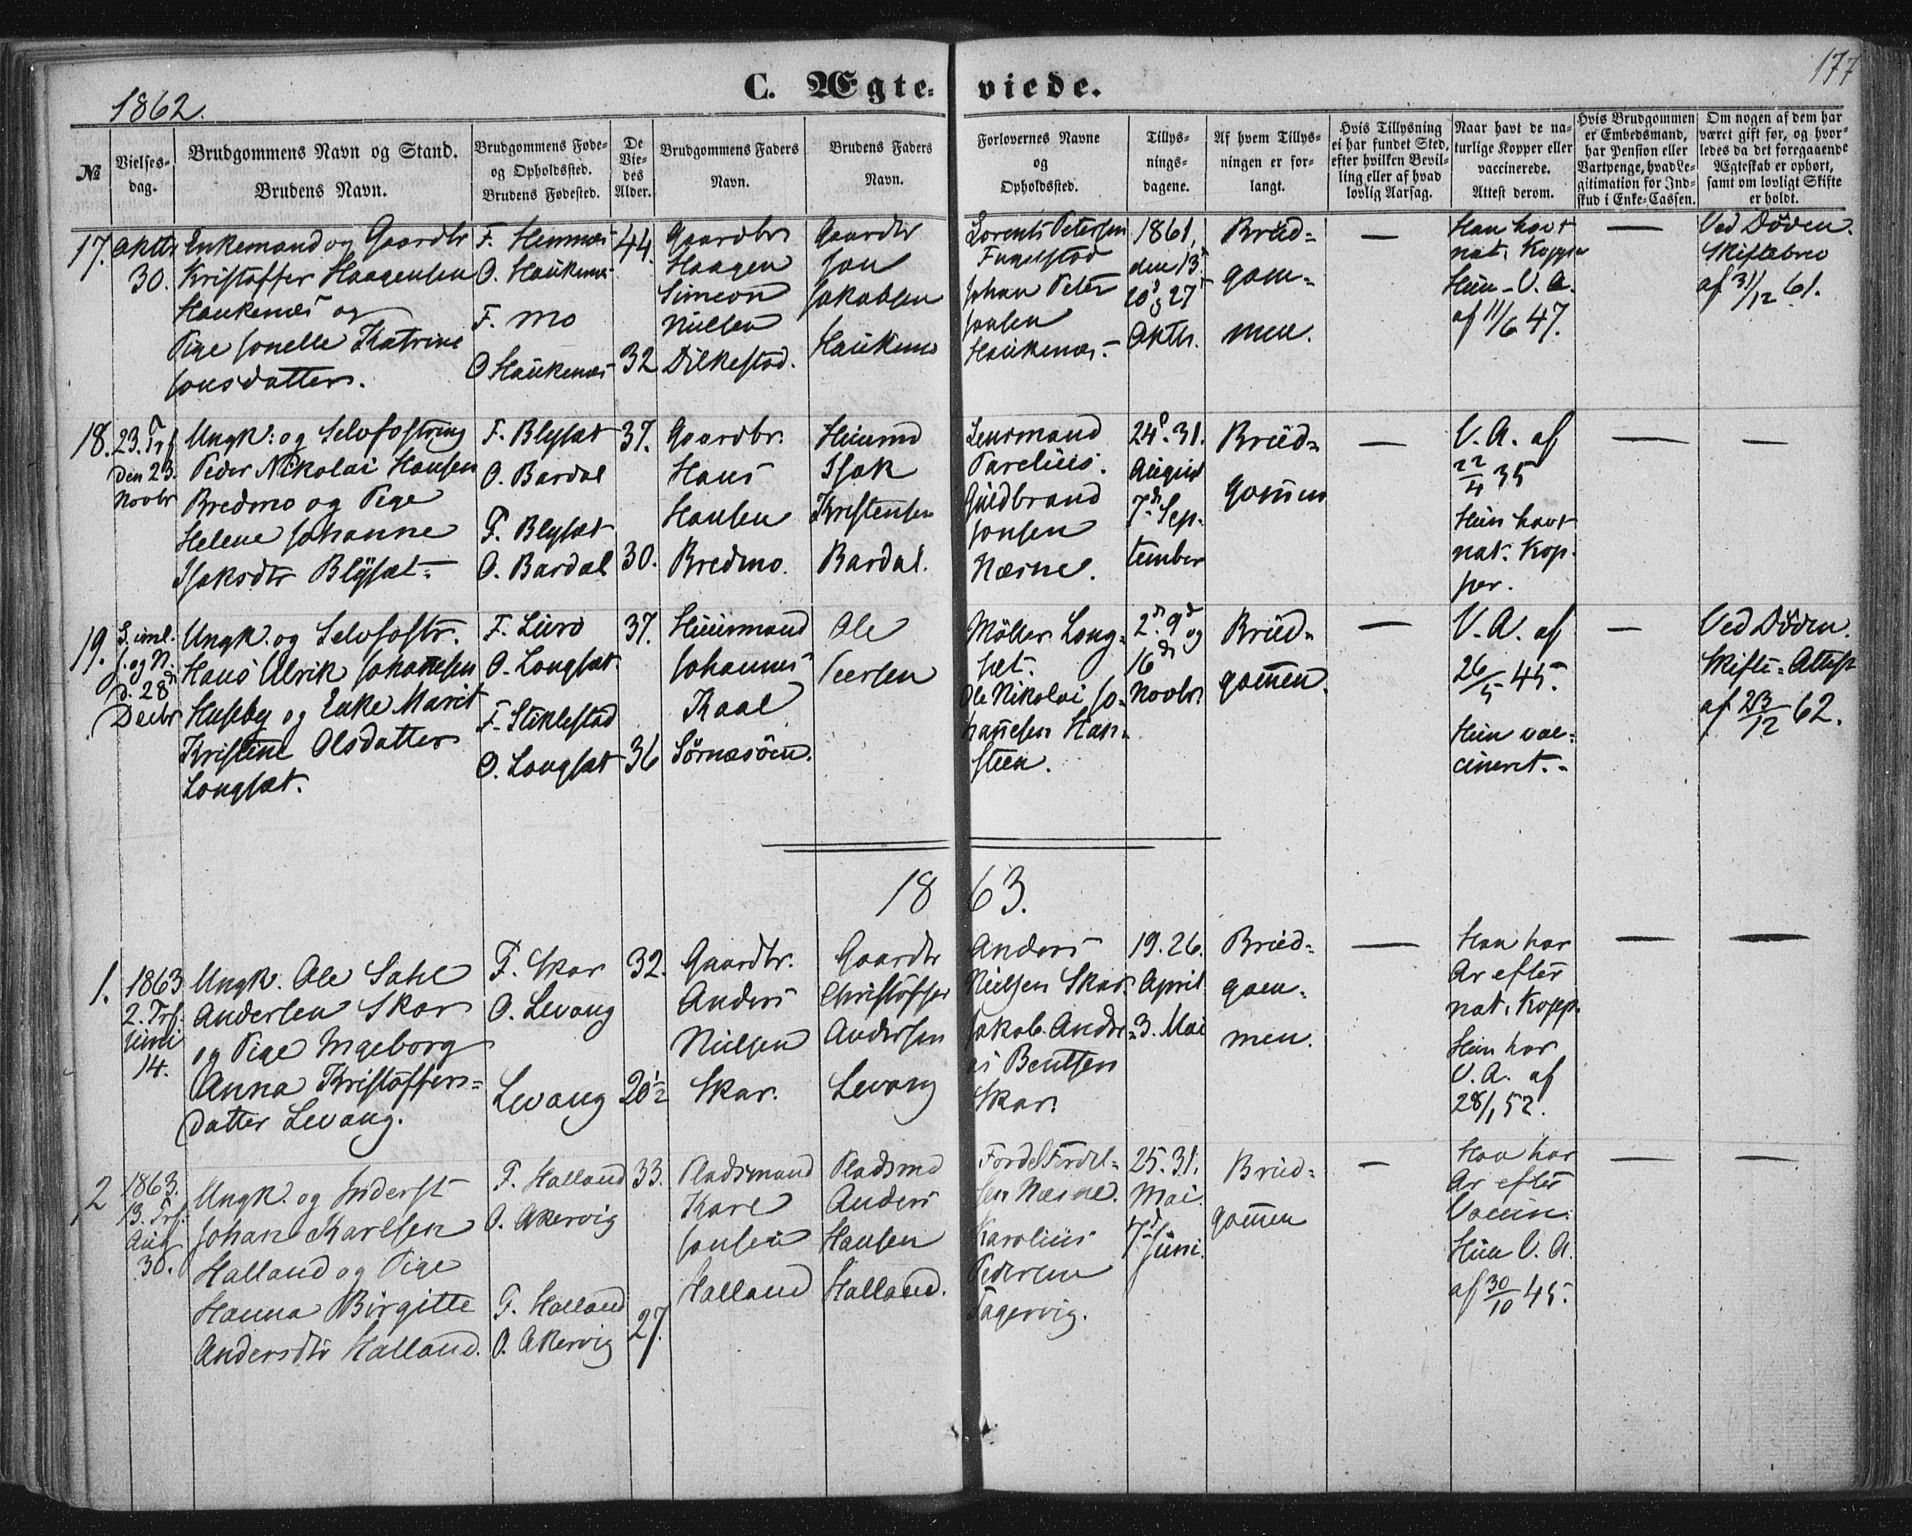 177
C. Ægte- viede.
1862.
№
Vielses-
dag.
Brudgommens Navn og Stand.
Brudens Navn.
Brudgommens Føde-
og Opholdssted.
Brudens Fødested.
De
Vie-
des
Alder.
Brudgommens Faders
Navn.
Brudens Faders
Navn.
Forlovernes Navne
og
Opholdssted.
Tillys-
nings-
dagene.
Af hvem Tillys-
ningen er for-
langt.
Hvis Tillysning
ei har fundet Sted,
efter hvilken Bevil-
ling eller af hvad
lovlig Aarsag.
Naar havt de na-
turlige Kopper eller
vaccinerede.
Attest derom.
Hvis Brudgommen
er Embedsmand,
har Pension eller
Vartpenge, hvad Le-
gitimation for Ind-
skud i Enke-Cassen.
Om nogen af dem har
været gift før, og hvor-
ledes da det foregaaende
Ægteskab er ophørt,
samt om lovligt Skifte
er holdt.
17.
Oktbr
30.
Enkemand og Gaardbr
Kristoffer Haagensen
Haukenæs og
Pige Jonelle Katrine
Jonsdatter.
F. Hemnæs
O. Haukenæs
F. Mo
O Haukenæs
44.
32
Gaardbr
Haagen
Simeon
Nielsen
Dilkestad.
Gaardbr
Jon
Jakobsen
Haukenæs
Lorents Petersen
Fugelstad
Johan Peter
Jonsen
Haukenæs.
1861,
den 13
20 og 27
Oktbr.
Brud-
gom-
men.
—
Han havt
nat. Kopper
Hun - V. A.
af 11/6 47.
—
Ved Døden.
Skiftebrev
af 31/12 61.
18.
23. Trf
Den 23.
Novbr
Ungk. og Selvfostring
Peder Nikolai Hansen
Bredmo og Pige
Helene Johanne
Isaksdtr Blysæt-
F. Blysæt
O. Bardal
F. Blysæt
O. Bardal
37.
30.
Gaardbr.
Hans
Hansen
Bredmo.
Huusmd
Isak
Kristensen
Bardal.
Lensmand
Parelius.
Guldbrand
Jonsen
Næsne.
24d 31.
August
7de Sep-
tember
Brud-
gommen
—
V. A. af
22/4 35
Hun havt
nat. Kop-
per.
—
—
19.
S. iml.
J. og N.
d. 28d
Decbr
Ungk. og Selvfostr.
Hans Ulrik Johannesen
Huseby og Enke Marit
Kristine Olsdatter
Longsæt.
F. Lurö
O. Longsæt
F. Stiklestad
O. Longsæt
37.
36
Huusmand
Johannes
Kaal
Sørnæsöen.
Ole
Peersen
Möller Long-
sæt.
Ole Nikolai Jo-
hannesen Han-
steen.
2d. 9d og
16d
Novbr
Brud-
gommen.
—
V. A. af
26/5 45.
Hun vac-
cineret.-
—
Ved Döden.
Skifte-Attest
af 23/12 62.
18 63.
1.
1863
2. Trf.
Juni
14.
Ungk. Ole Satel
Andersen Skar
og Pige Ingeborg
Anna Kristoffers-
datter Levang.
F. Skar
O. Levang
Levang
32.
20½
Gaardbr.
Anders
Nielsen
Skar.
Gaardbr
Christoffer
Andersen
Levang
Anders
Nielsen Skar.
Jakob Andre-
as Bentsen
Skar.
19. 26.
April
3. Mai
Brud-
gom-
men.
—
Han har
Ar efter
nat. Kopp.
Hun har
V. A. af
28/1 52.
—
—
2
1863.
13. Trf.
Aug
30.
Ungk. og Inderst
Johan Karlsen
Halland og Pige
Hanna Birgitte
Andersdtr Halland.
F. Halland
O. Akervig
F. Halland
O. Akervig
33.
27.
Pladsmand
Karl
Jonsen
Halland
Pladsmd
Anders
Hansen
Halland.
Fordel Fordel-
sen Næsne.
Karolius
Pedersen
Fagervig.
25. 31.
Mai
7d Juni.
Brud-
gommen
—
Han har
Ar efter
Vaccin.
Hun V. A.
af 30/10 45.
—
—